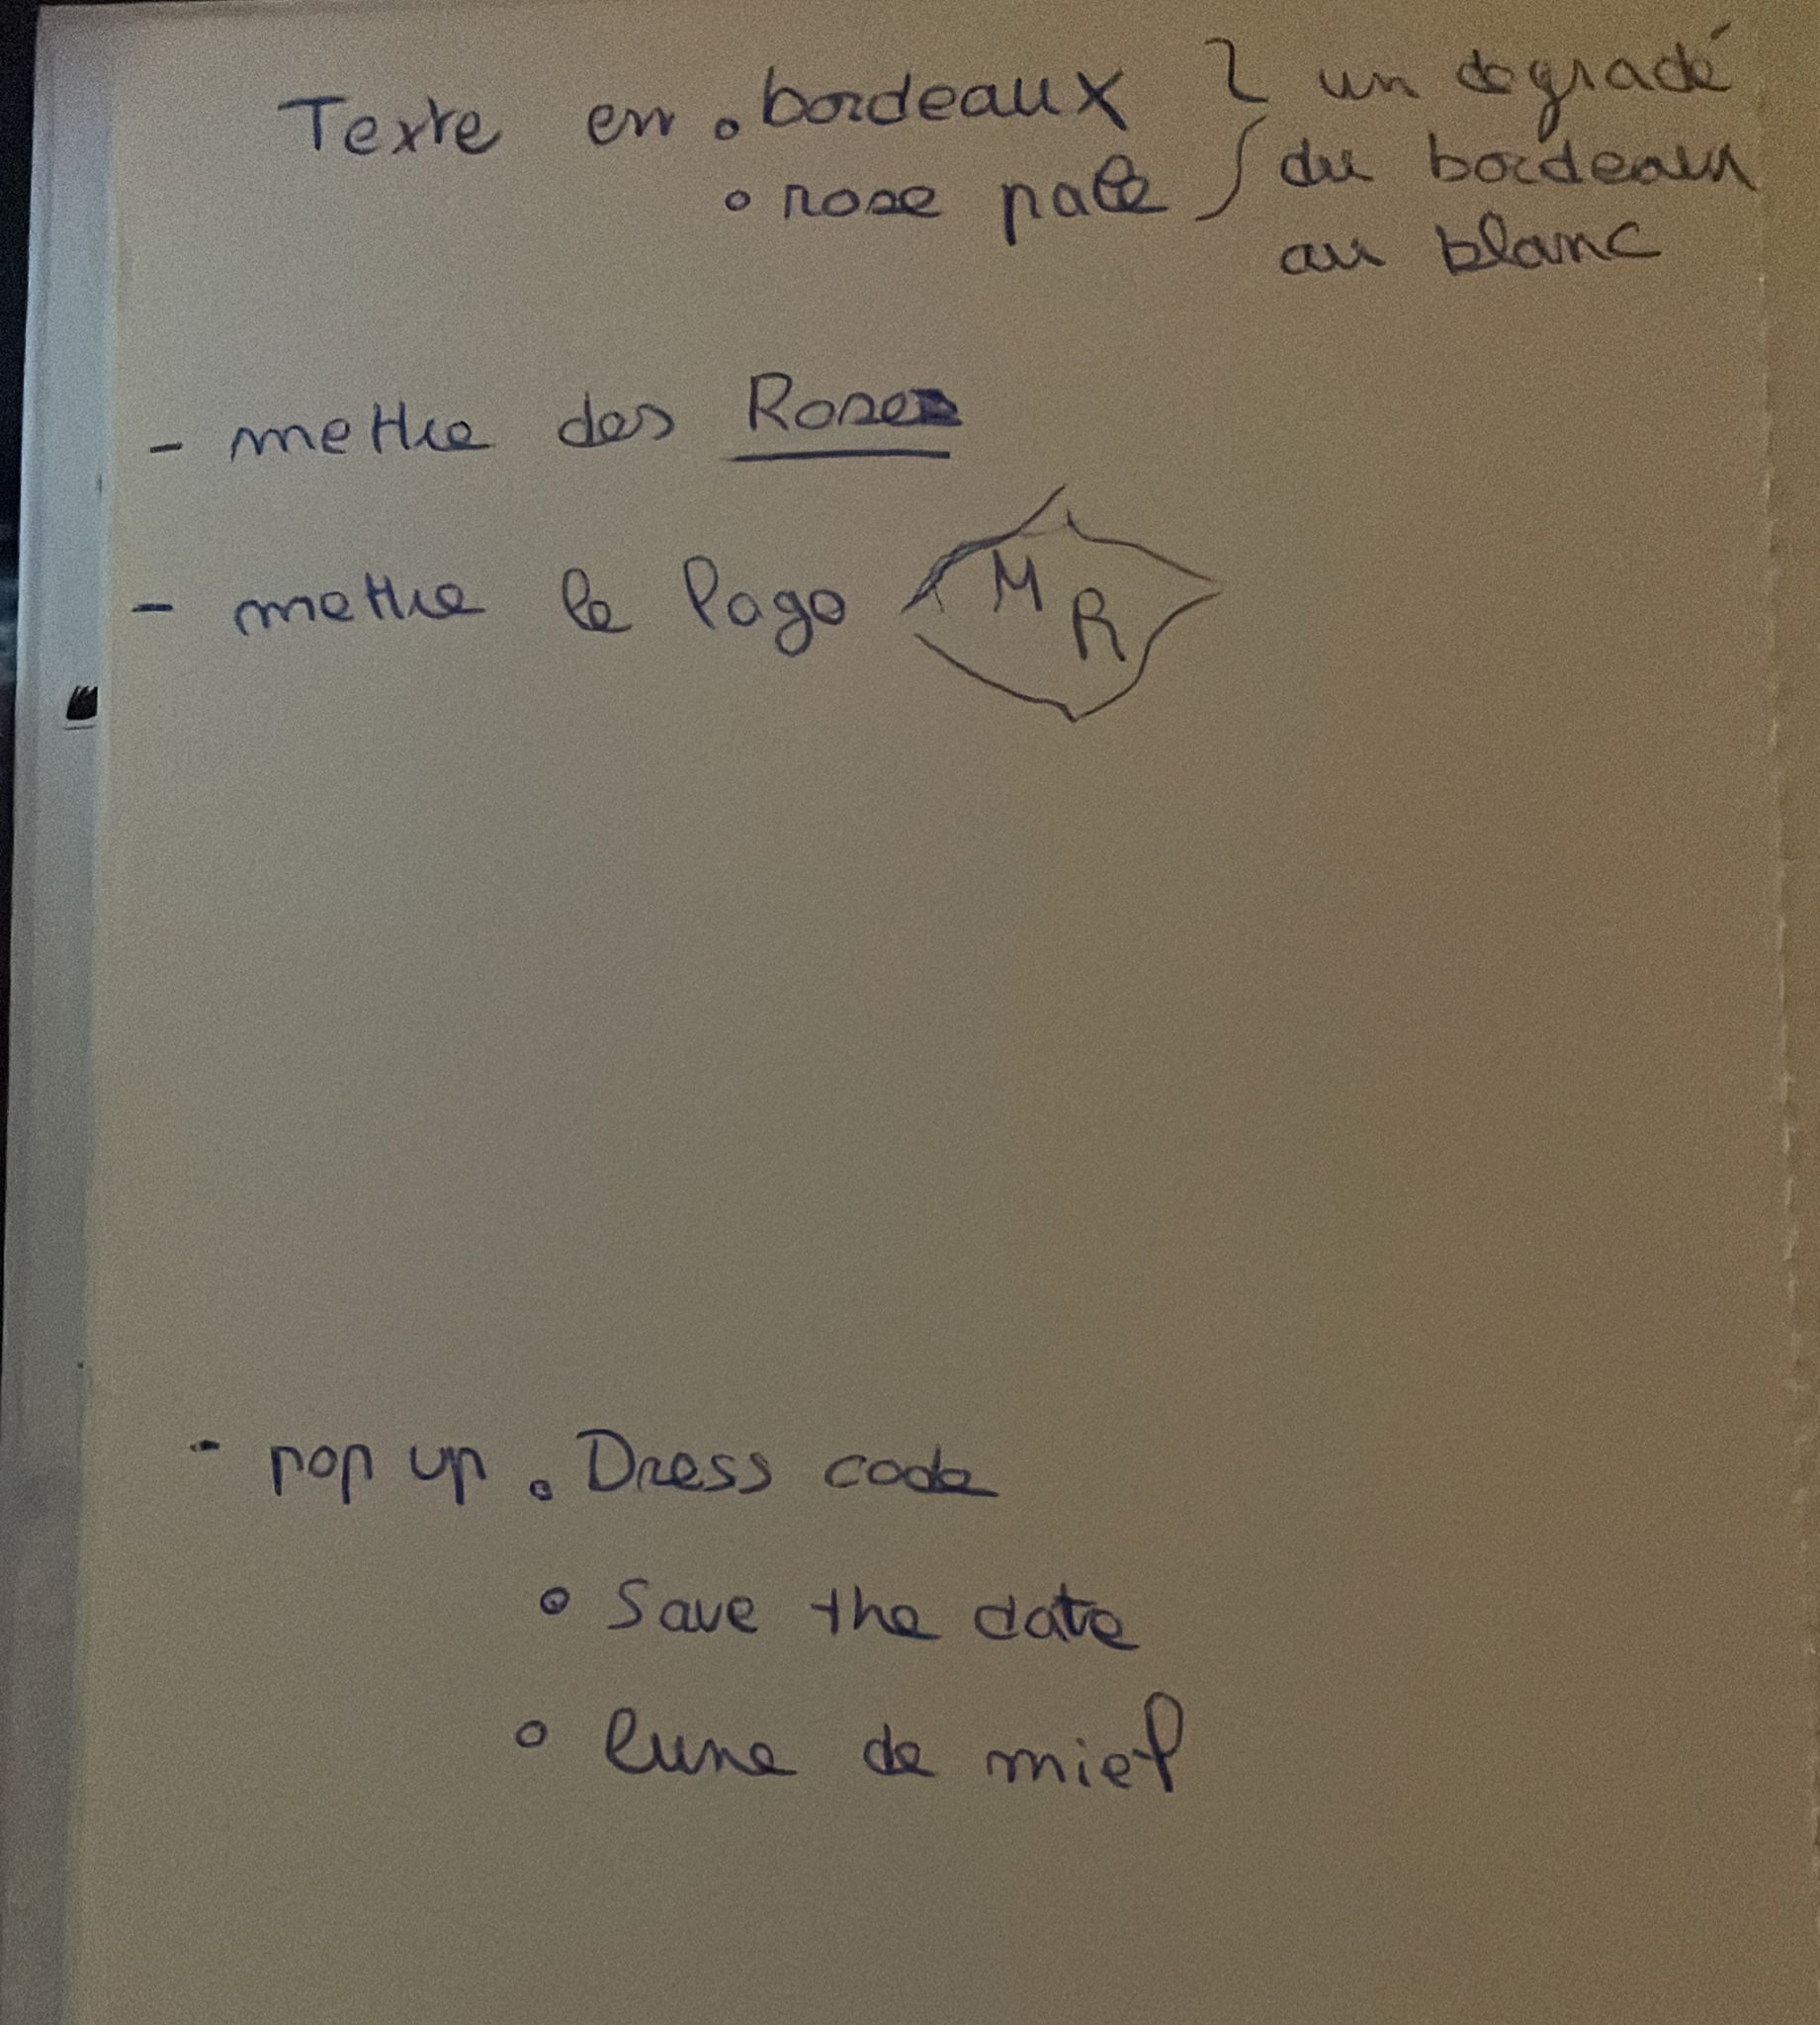 Texte en • bordeaux } un degradé
• rose pale } du bordeaux
au blanc
- mettre des Roses
- mettre le logo M R
- pop up • Dress code
• Save the date
• lune de miel